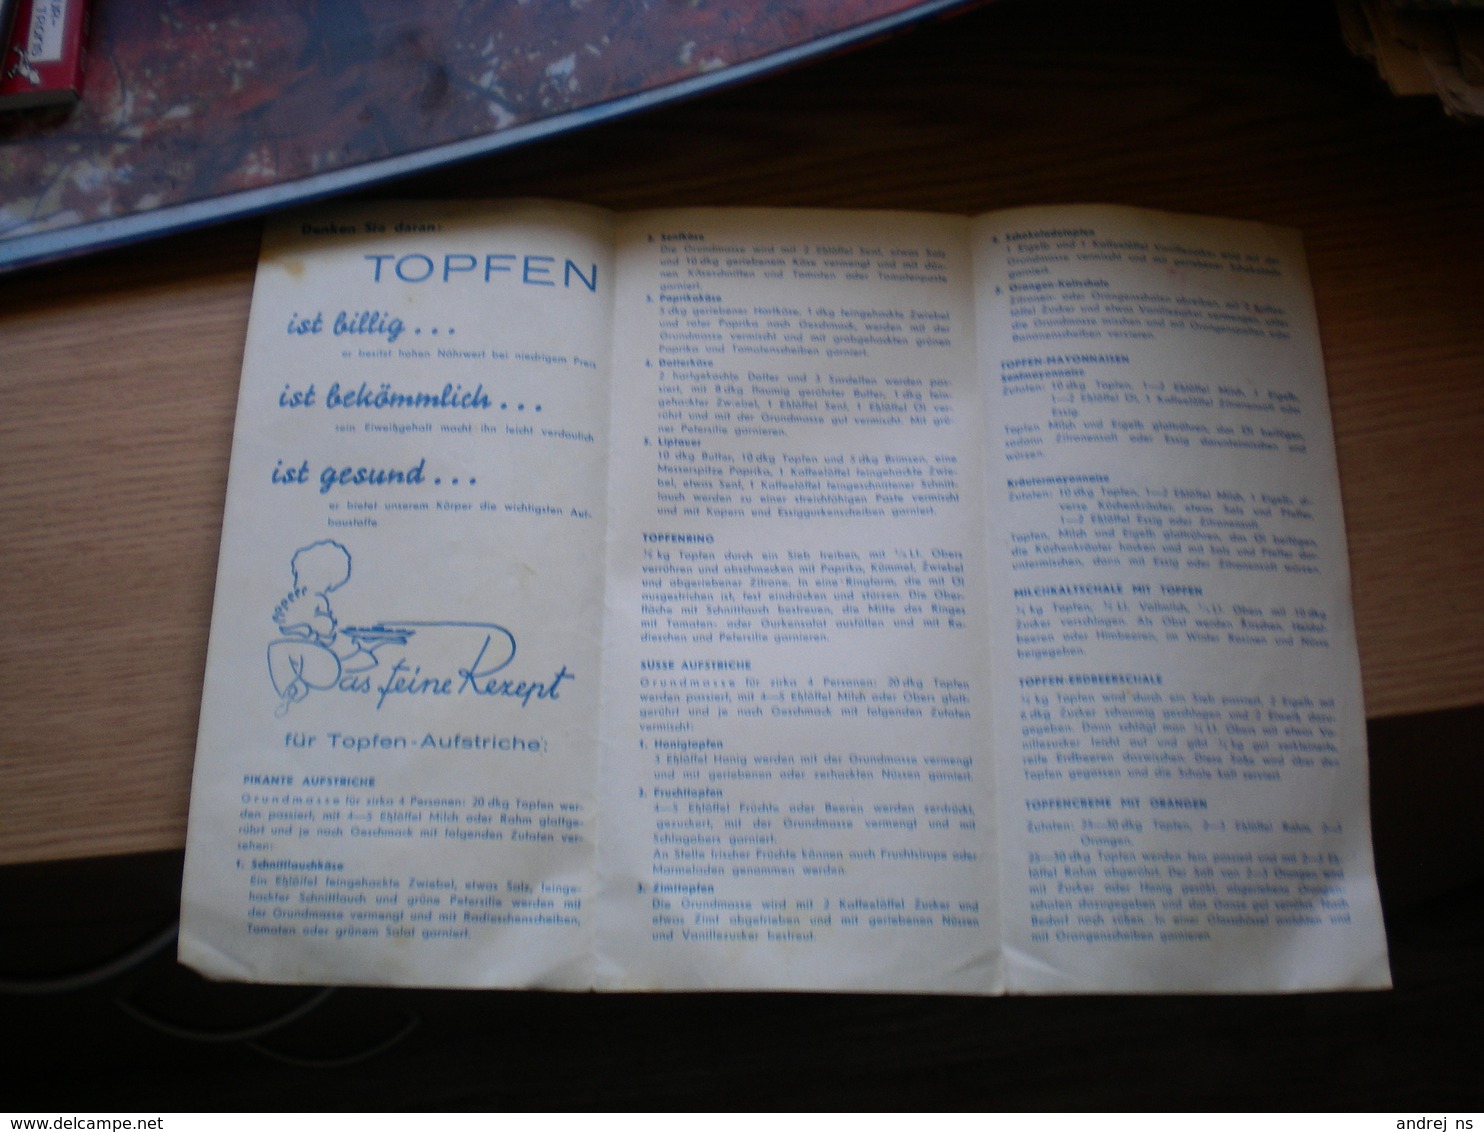 Denken Sie daran:
TOPFEN
ist billig . . .
er besitzt hohen Nährwert bei niedrigem Preis
ist bekömmlich . . .
sein Eiweißgehalt macht ihn leicht verdaulich
ist gesund . . .
er bietet unserem Körper die wichtigsten Auf-
baustoffe
Das feine Rezept
für Topfen-Aufstriche:
PIKANTE AUFSTRICHE
Grundmasse für zirka 4 Personen: 20 dkg Topfen wer-
den passiert, mit 4—5 Eßlöffel Milch oder Rahm glattge-
rührt und je nach Geschmack mit folgenden Zutaten ver-
sehen:
1. Schnittlauchkäse
Ein Eßlöffel feingehackte Zwiebel, etwas Salz, feinge-
hackter Schnittlauch und grüne Petersilie werden mit
der Grundmasse vermengt und mit Radieschenscheiben,
Tomaten oder grünem Salat garniert.
2. Senfkäse
Die Grundmasse wird mit 2 Eßlöffel Senf, etwas Salz
und 10 dkg geriebenem Käse vermengt und mit dün-
nen Käseschnitten und Tomaten oder Tomatenpaste
garniert.
3. Paprikakäse
5 dkg geriebener Hartkäse, 1 dkg feingehackte Zwiebel
und roter Paprika nach Geschmack, werden mit der
Grundmasse vermischt und mit grobgehackten grünen
Paprika und Tomatenscheiben garniert.
4. Dotterkäse
2 hartgekochte Dotter und 3 Sardellen werden pas-
siert, mit 8 dkg flaumig gerührter Butter, 1 dkg fein-
gehackter Zwiebel, 1 Eßlöffel Senf, 1 Eßlöffel Öl ver-
rührt und mit der Grundmasse gut vermischt. Mit grü-
ner Petersilie garnieren.
5. Liptauer
10 dkg Butter, 10 dkg Topfen und 5 dkg Brimsen, eine
Messerspitze Paprika, 1 Kaffeelöffel feingehackte Zwie-
bel, etwas Senf, 1 Kaffeelöffel feingeschnittener Schnitt-
lauch werden zu einer streichfähigen Paste vermischt
und mit Kapern und Essiggurkenscheiben garniert.
TOPFENRING
kg Topfen durch ein Sieb treiben, mit Lt. Obers
verrühren und abschmecken mit Paprika, Kümmel, Zwiebel
und abgeriebener Zitrone. In eine Ringform, die mit Öl
ausgestrichen ist, fest eindrücken und stürzen. Die Ober-
fläche mit Schnittlauch bestreuen, die Mitte des Ringes
mit Tomaten- oder Gurkensalat ausfüllen und mit Ra-
dieschen und Petersilie garnieren.
SÜSSE AUFSTRICHE
Grundmasse für zirka 4 Personen: 20 dkg Topfen
werden passiert, mit 4—5 Eßlöffel Milch oder Obers glatt-
gerührt und je nach Geschmack mit folgenden Zutaten
vermischt:
1. Honigtopfen
3 Eßlöffel Honig werden mit der Grundmasse vermengt
und mit geriebenen oder zerhackten Nüssen garniert.
2. Fruchttopfen
4—5 Eßlöffel Früchte oder Beeren werden zerdrückt,
gezuckert, mit der Grundmasse vermengt und mit
Schlagobers garniert.
An Stelle frischer Früchte können auch Fruchtsirupe oder
Marmeladen genommen werden.
3. Zimttopfen
Die Grundmasse wird mit 2 Kaffeelöffel Zucker und
etwas Zimt abgetrieben und mit geriebenen Nüssen
und Vanillezucker bestreut.
4. Schokoladetopfen
1 Eigelb und 1 Kaffeelöffel Vanillezucker wird mit der
Grundmasse vermischt und mit geriebener Schokolade
garniert.
5. Orangen-Kaltschale
Zitronen- oder Orangenschalen abreiben, mit 2 Kaffee-
löffel Zucker und etwas Vanillezucker vermengen, unter
die Grundmasse mischen und mit Orangenspalten oder
Bananenscheiben verzieren.
TOPFEN-MAYONNAISEN
Senfmayonnaise
Zutaten: 10 dkg Topfen, 1—2 Eßlöffel Milch, 1 Eigelb,
1—2 Eßlöffel Öl, 1 Kaffeelöffel Zitronensaft oder
Essig.
Topfen Milch und Eigelb glattrühren, das Öl beifügen,
sodann Zitronensaft oder Essig daruntermischen und
würzen.
Kräutermayonnaise
Zutaten: 10 dkg Topfen, 1—2 Eßlöffel Milch, 1 Eigelb, di-
verse Küchenkräuter, etwas Salz und Pfeffer,
1—2 Eßlöffel Essig oder Zitronensaft.
Topfen, Milch und Eigelb glattrühren, das Öl beifügen,
die Küchenkräuter hacken und mit Salz und Pfeffer dar-
untermischen, dann mit Essig oder Zitronensaft würzen.
MILCHKALTSCHALE MIT TOPFEN
kg Topfen, Lt. Vollmilch, Lt. Obers mit 10 dkg
Zucker verschlagen. Als Obst werden Kirschen, Heidel-
beeren oder Himbeeren, im Winter Rosinen und Nüsse
beigegeben.
TOPFEN-ERDBEERSCHALE
kg Topfen wird durch ein Sieb passiert, 2 Eigelb mit
6 dkg Zucker schaumig geschlagen und 2 Eiweiß dazu-
gegeben. Dann schlägt man Lt. Obers mit etwas Va-
nillezucker leicht auf und gibt kg gut verkleinerte,
reife Erdbeeren dazwischen. Diese Soße wird über den
Topfen gegossen und die Schale kalt serviert.
TOPFENCREME MIT ORANGEN
Zutaten: 25—30 dkg Topfen, 2—3 Eßlöffel Rahm, 2—3
Orangen.
25—30 dkg Topfen werden fein passiert und mit 2—3 Eß-
löffel Rahm abgerührt. Der Saft von 2—3 Orangen wird
mit Zucker oder Honig gesüßt, abgeriebene Orangen-
schalen dazugegeben und das Ganze gut verrührt. Nach
Bedarf noch süßen. In einer Glasschüssel anrichten und
mit Orangenscheiben garnieren.
andrej ns
delcampe.net